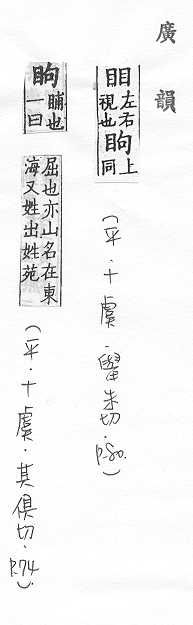 廣韻
䀠左右視也眗上同
(平．十虞．舉朱切．P.80.)
朐脯也一曰
屈也亦山名在東
海又姓出姓苑
(平．十虞．其俱切．P.74.)